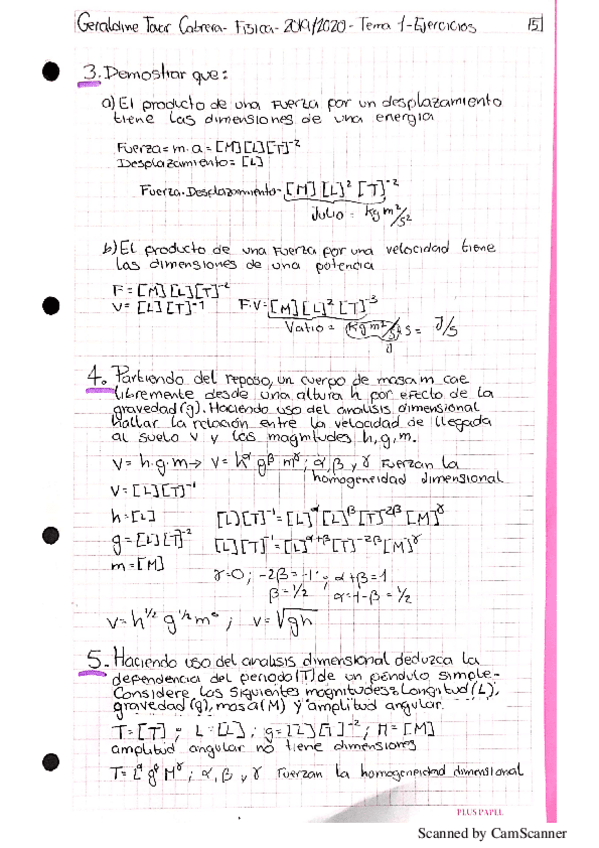 Geraldine Tovar Cabrera- Física- 2019/2020- Tema 1-Ejercicios 15
3. Demostrar que:
a) El producto de una Fuerza por un desplazamiento
tiene las dimensiones de una energía
Fuerza= m·a = [M][L][T]⁻²
Desplazamiento= [L]
Fuerza·Desplazamiento= [M][L]²[T]⁻²
Julio = kg m²/s²
b) El producto de una Fuerza por una velocidad tiene
las dimensiones de una potencia
F = [M][L][T]⁻²
V= [L][T]⁻¹ F·V= [M][L]²[T]⁻³
Vatio = kg m²/s²·s = J/s
J
4. Partiendo del reposo, un cuerpo de masa m cae
libremente desde una altura h por efecto de la
gravedad (g). Haciendo uso del analisis dimensional
hallar la relación entre la velocidad de llegada
al suelo v y las magnitudes h, g, m.
V= h·g·m → V= h^α g^β m^γ ; α, β y γ Fuerzan la
homogeneidad dimensional
V= [L][T]⁻¹
h= [L] [L][T]⁻¹=[L]^α[L]^β[T]^2β[M]^γ
g= [L][T]⁻² [L][T]⁻¹=[L]^α+β[T]^-2β[M]^γ
m= [M]
γ=0 ; -2β=-1 ; α+β=1
β=1/2 α=1-β = 1/2
V= h^1/2 g^1/2 m⁰ ; V= √gh
5. Haciendo uso del analisis dimensional deduzca la
dependencia del periodo (T) de un péndulo simple-
Considere las siguientes magnitudes: Longitud (L),
gravedad (g), masa (M) y amplitud angular.
T= [T] ; L= [L] ; g= [L][T]⁻² ; M= [M]
amplitud angular no tiene dimensiones
T= L^α g^β M^γ ; α, β y γ Fuerzan la homogeneidad dimensional
PLUS PAPEL
Scanned by CamScanner